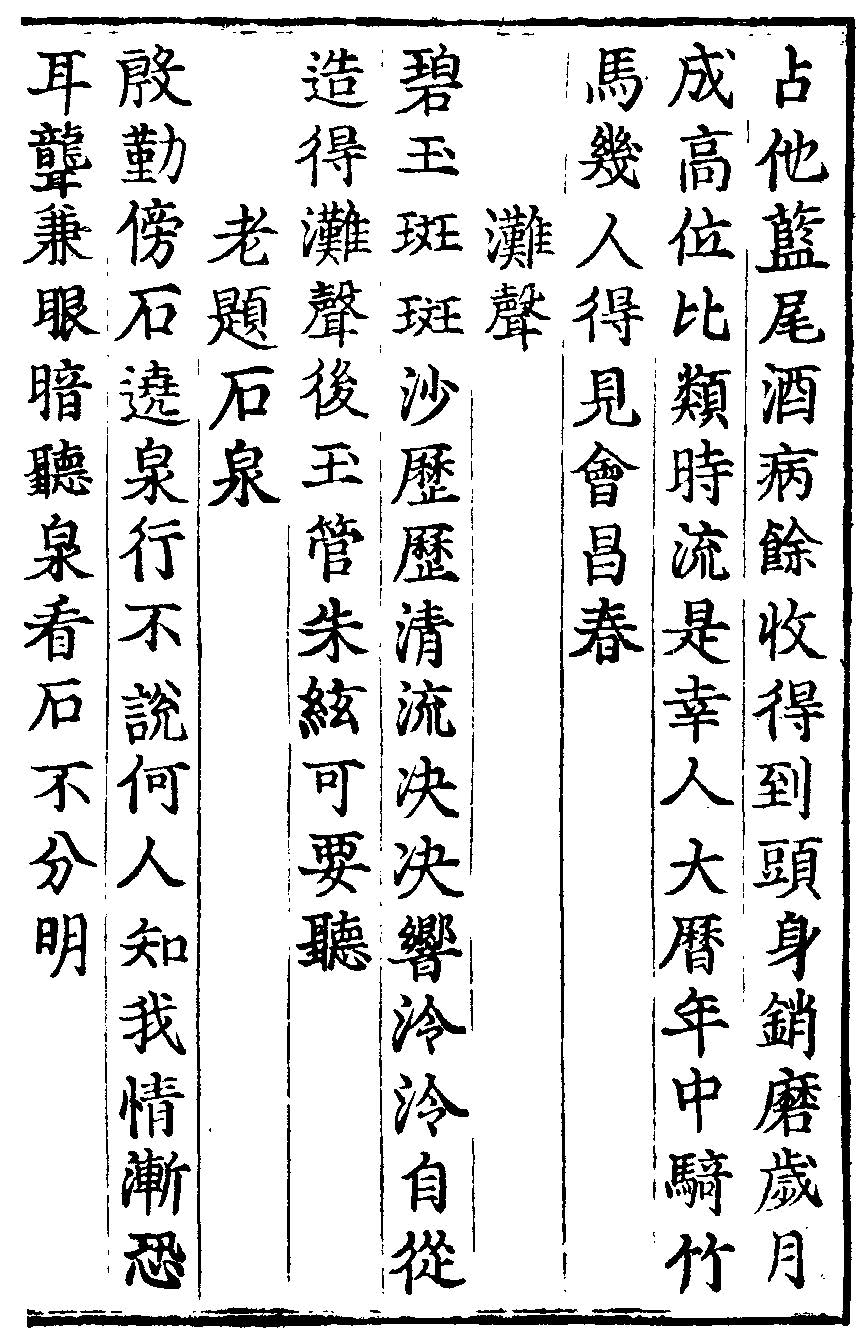 占他藍尾酒病餘收得到頭身銷磨歲月
成高位比類時流是幸人大曆年中騎竹
馬幾人得見會昌春
灘聲
碧玉斑斑沙歷歷清流决决響泠泠自從
造得灘聲後玉管朱絃可要聽
老題石泉
殷勤傍石遶泉行不說何人知我情漸恐
耳聾兼眼暗聽泉看石不分明